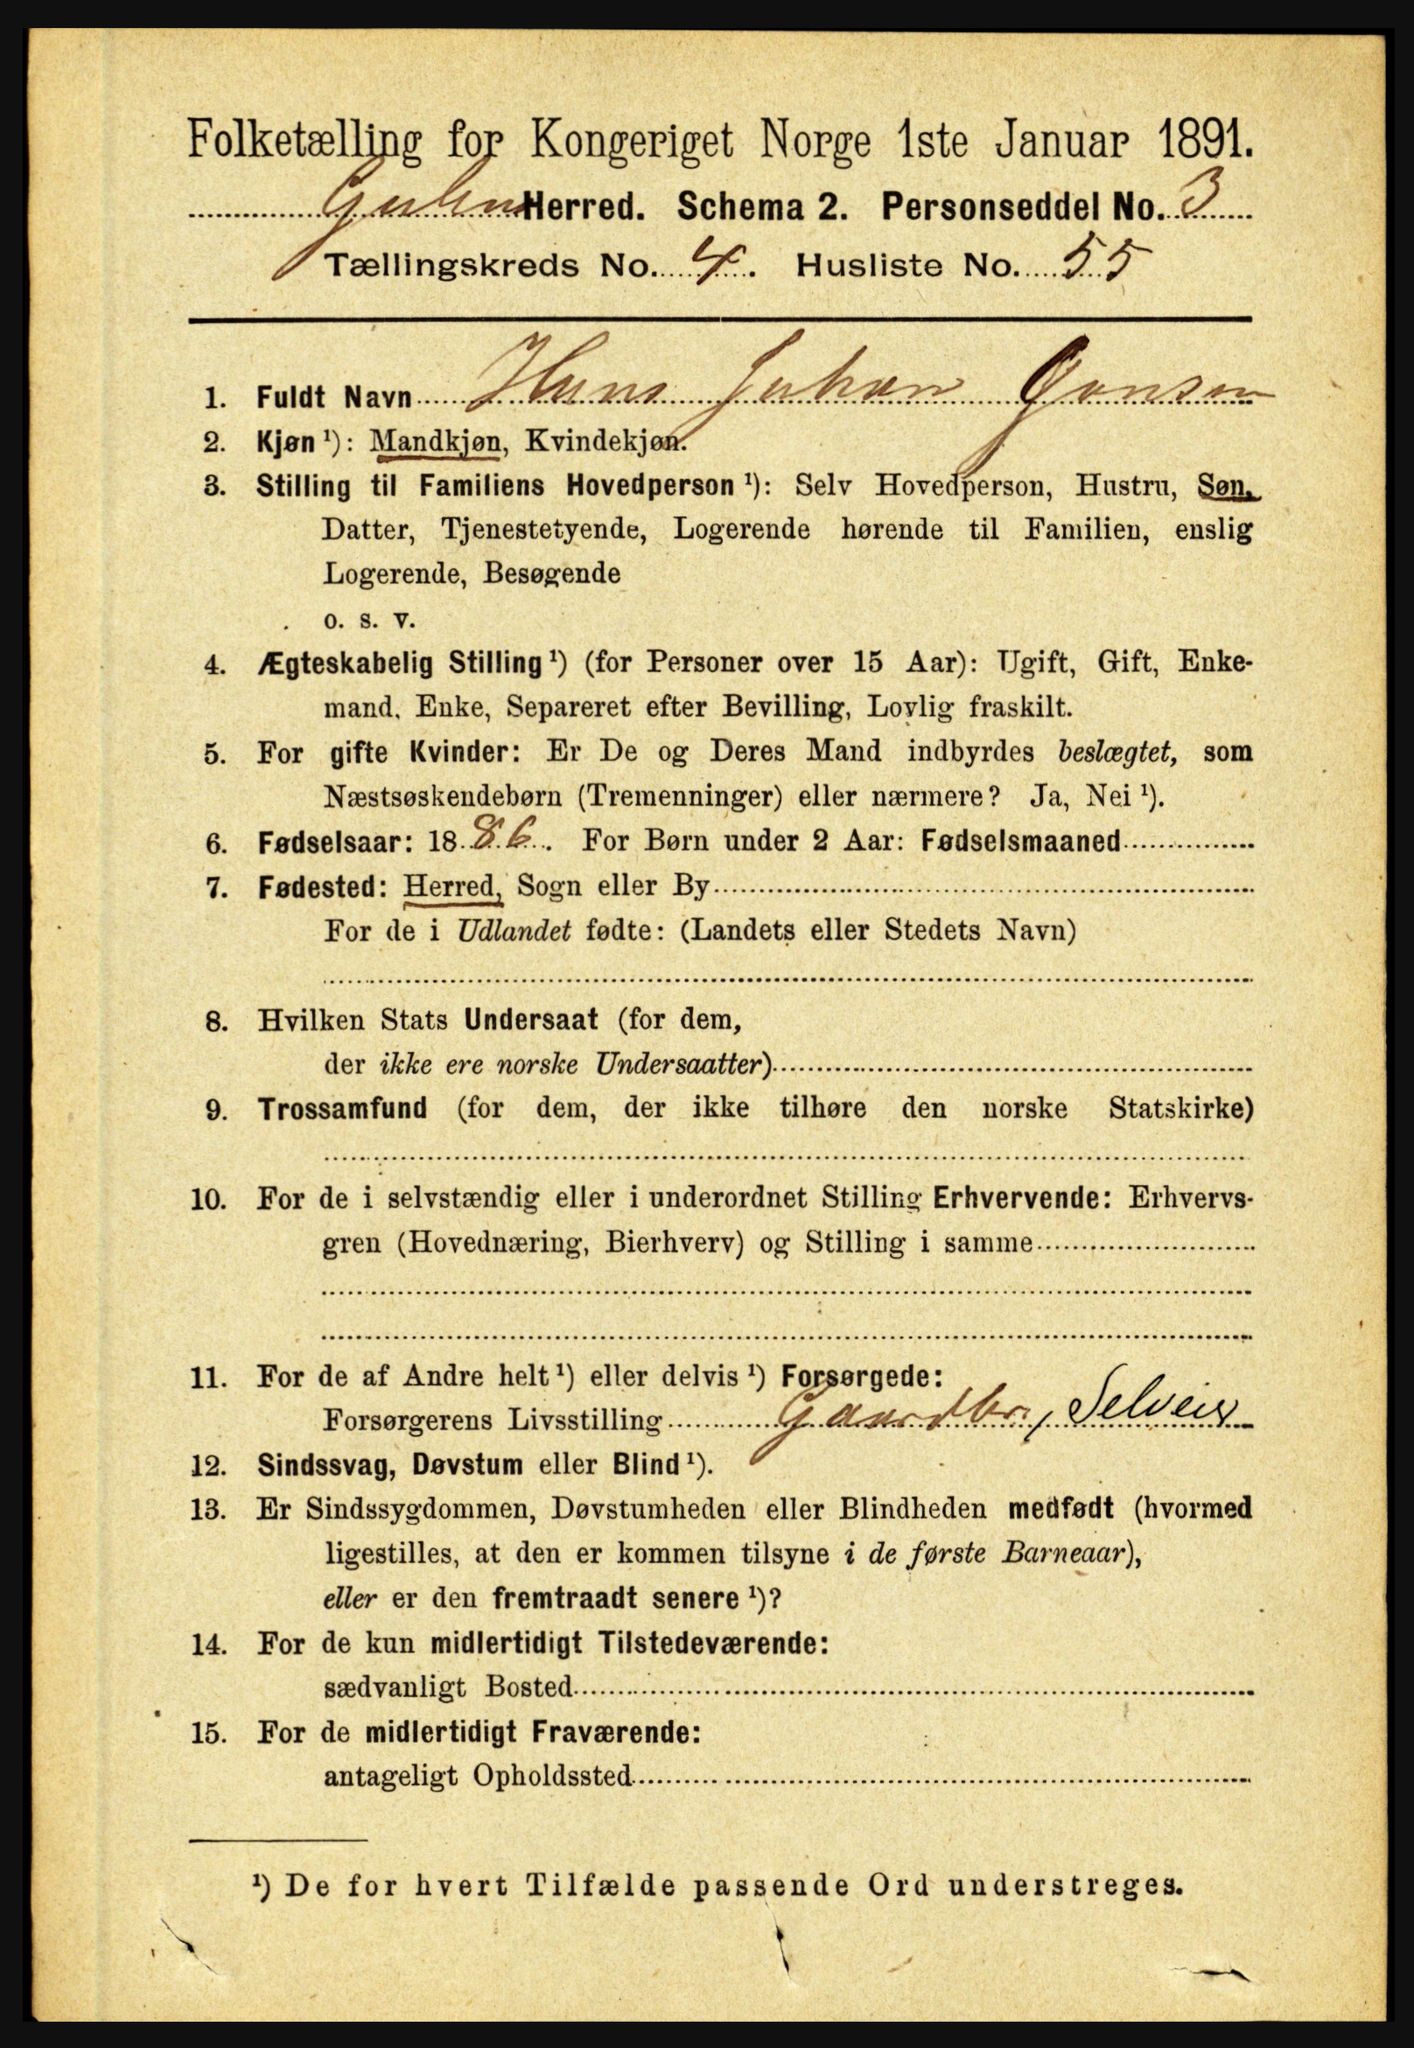 Folketælling for Kongeriget Norge 1ste Januar 1891.
Gulens Herred. Schema 2. Personseddel No. 3
Tællingskreds No. 4. Husliste No. 55
1. Fuldt Navn Hans Johan Jonsen
2. Kjøn¹): Mandkjøn, Kvindekjøn.
3. Stilling til Familiens Hovedperson¹): Selv Hovedperson, Hustru, Søn,
Datter, Tjenestetyende, Logerende hørende til Familien, enslig
Logerende, Besøgende
o. s. v.
4. Ægteskabelig Stilling¹) (for Personer over 15 Aar): Ugift, Gift, Enke-
mand, Enke, Separeret efter Bevilling, Lovlig fraskilt.
5. For gifte Kvinder: Er De og Deres Mand indbyrdes beslægtet, som
Næstsøskendebørn (Tremenninger) eller nærmere? Ja, Nei¹).
6. Fødselsaar: 1886. For Børn under 2 Aar: Fødselsmaaned
7. Fødested: Herred, Sogn eller By
For de i Udlandet fødte: (Landets eller Stedets Navn)
8. Hvilken Stats Undersaat (for dem,
der ikke ere norske Undersaatter)
9. Trossamfund (for dem, der ikke tilhøre den norske Statskirke)
10. For de i selvstændig eller i underordnet Stilling Erhvervende: Erhvervs-
gren (Hovednæring, Bierhverv) og Stilling i samme
11. For de af Andre helt¹) eller delvis¹) Forsørgede:
Forsørgerens Livsstilling Gaardbr, Selveier
12. Sindssvag, Døvstum eller Blind¹).
13. Er Sindssygdommen, Døvstumheden eller Blindheden medfødt (hvormed
ligestilles, at den er kommen tilsyne i de første Barneaar),
eller er den fremtraadt senere¹)?
14. For de kun midlertidigt Tilstedeværende:
sædvanligt Bosted
15. For de midlertidigt Fraværende:
antageligt Opholdssted
¹) De for hvert Tilfælde passende Ord understreges.